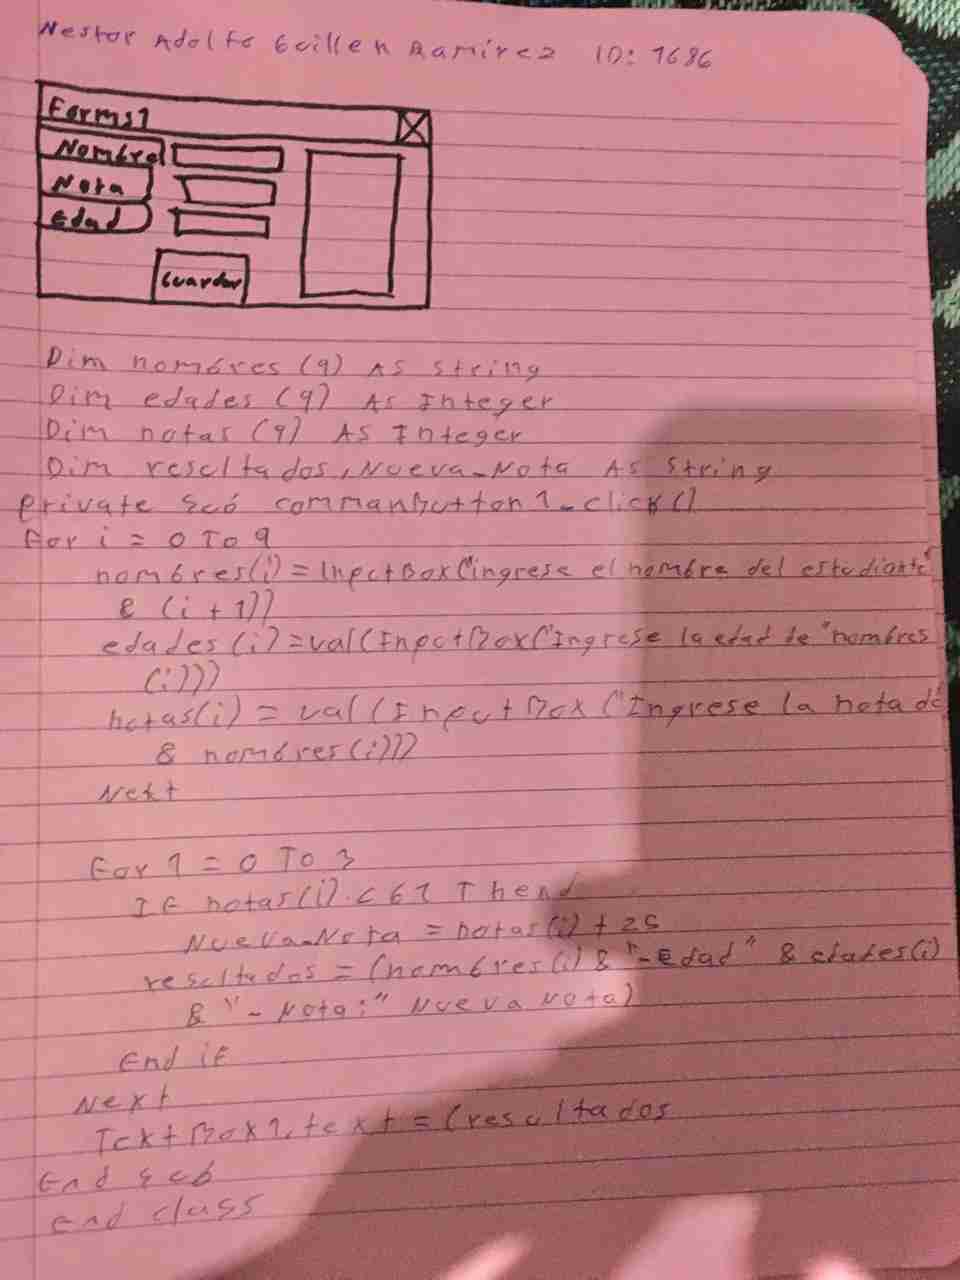 Nestor Adolfo Guillen Ramirez ID: 1686
Forms1
Nombre
Nota
Edad
Guardar
Dim nombres (9) As string
Dim edades (9) As Integer
Dim notas (9) As Integer
Dim resultados, Nueva_Nota As String
private sub commanButton1_click()
For i = 0 To 9
nombres(i) = InputBox("ingrese el nombre del estudiante"
& (i + 1))
edades (i) = val(InputBox("Ingrese la edad de "nombres
(i)))
notas(i) = val (InputBox ("Ingrese la nota de
& nombres(i)))
Next
For 1 = 0 To 3
IF notas(i) < 61 Then
Nueva_Nota = notas(i) + 25
resultados = (nombres(i) & "-Edad" & edades(i)
& "- Nota:" Nueva Nota)
End if
Next
TextBox1.text = (resultados
End sub
end class